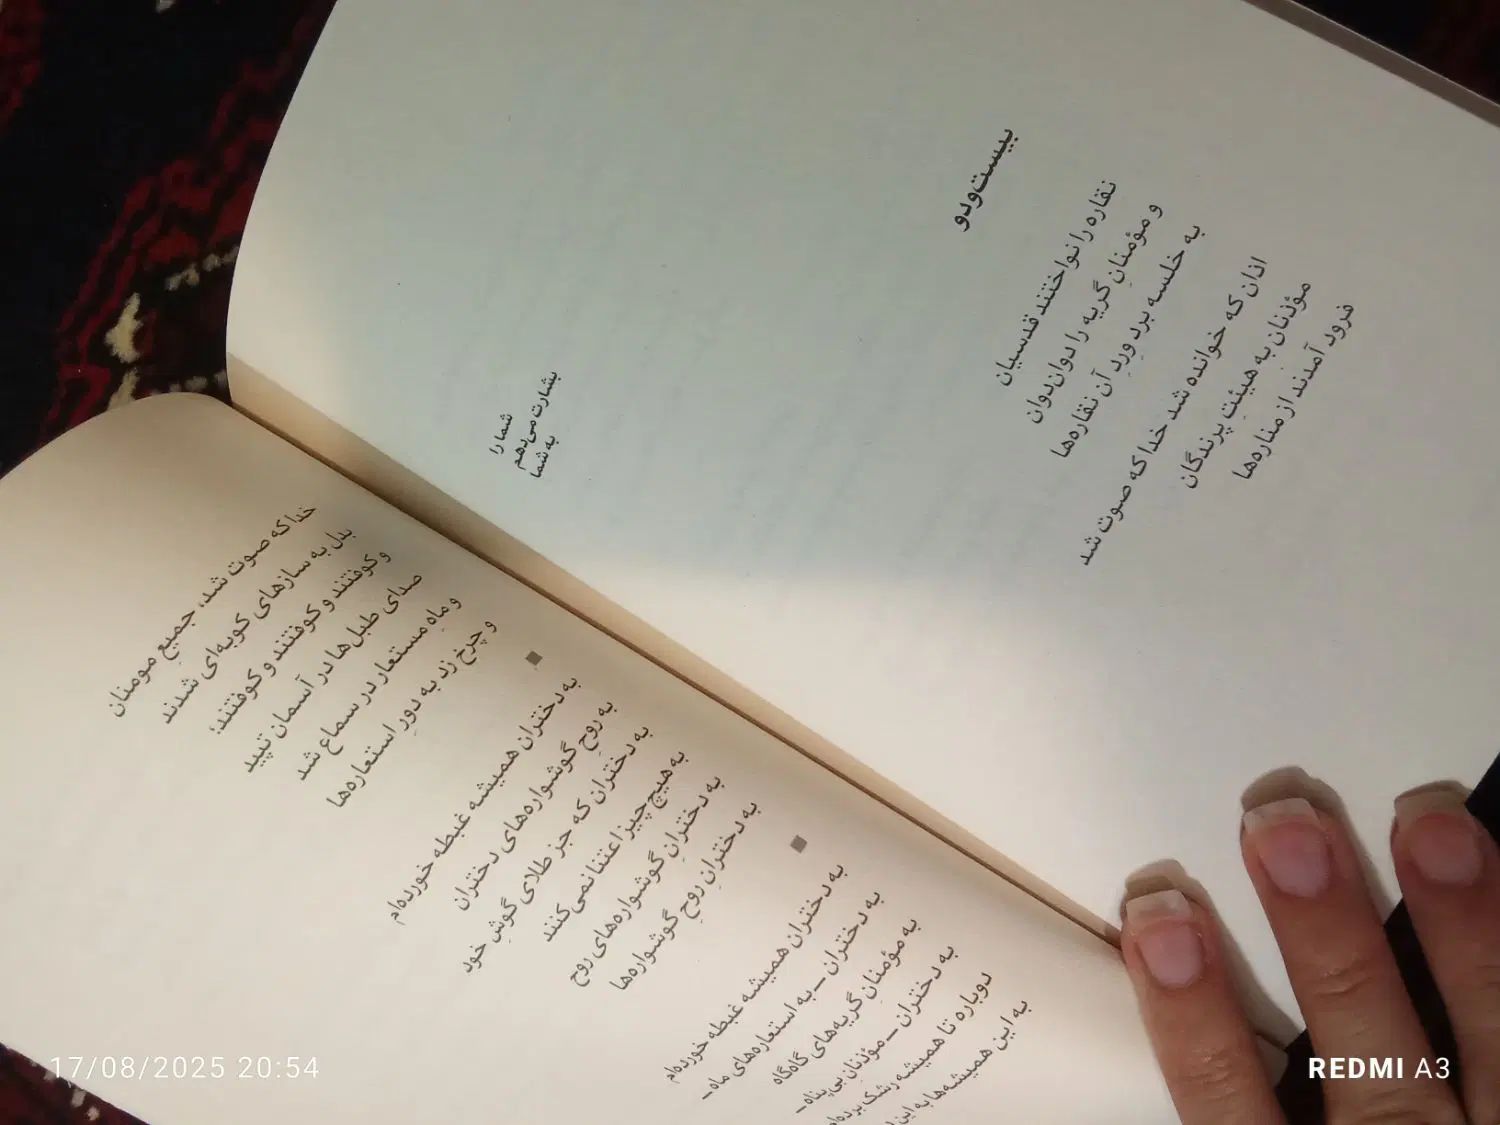 بیست‌ودو
نقاره را نواختند قدسیان
و مؤمنانِ گریه را دوان‌دوان
به خلسه برد وردِ آن نقاره‌ها
اذان که خوانده شد خدا که صوت شد
مؤذنان به هیئتِ پرندگان
فرود آمدند از مناره‌ها
شما را
بشارت می‌دهم
به شما
خدا که صوت شد، جمیعِ مومنان
بدل به سازهای کوبه‌ای شدند
و کوفتند و کوفتند و کوفتند؛
صدای طبل‌ها در آسمان تپید
و ماهِ مستعار در سماع شد
و چرخ زد به دورِ استعاره‌ها
به دختران همیشه غبطه خورده‌ام
به روحِ گوشواره‌های دختران
به دختران که جز طلای گوشِ خود
به هیچ چیز اعتنا نمی‌کنند
به دخترانِ گوشواره‌های روح
به دخترانِ روحِ گوشواره‌ها
به دختران همیشه غبطه خورده‌ام
به دختران ـ به استعاره‌های ماه ـ
به مؤمنانِ گریه‌های گاه‌گاه
به دختران ـ مؤذنانِ بی‌پناه ـ
دوباره تا همیشه رشک برده‌ام
به این همیشه‌ها به این
17/08/2025 20:54
REDMI A3